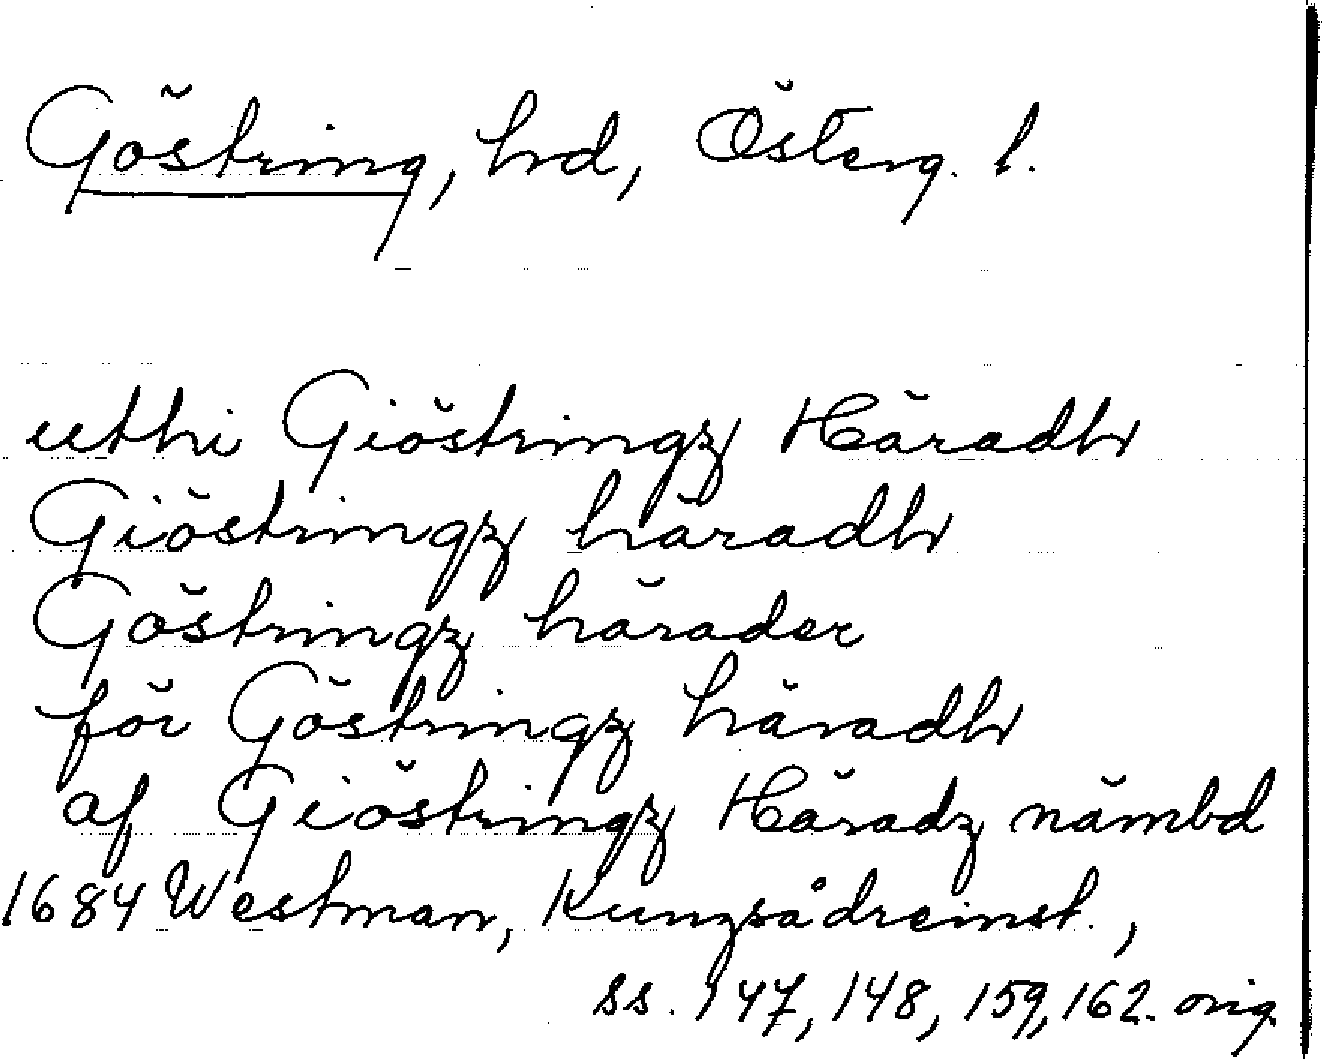 Göstring, hd, Österg. l.
uthi Giöstringz Häradh
Giöstringz häradh
Göstringz härader
för Göstringz häradh
af Giöstringz Häradz nämbd
1684 Westman, Kungsådreinst.,
ss. 147, 148, 159, 162. orig.